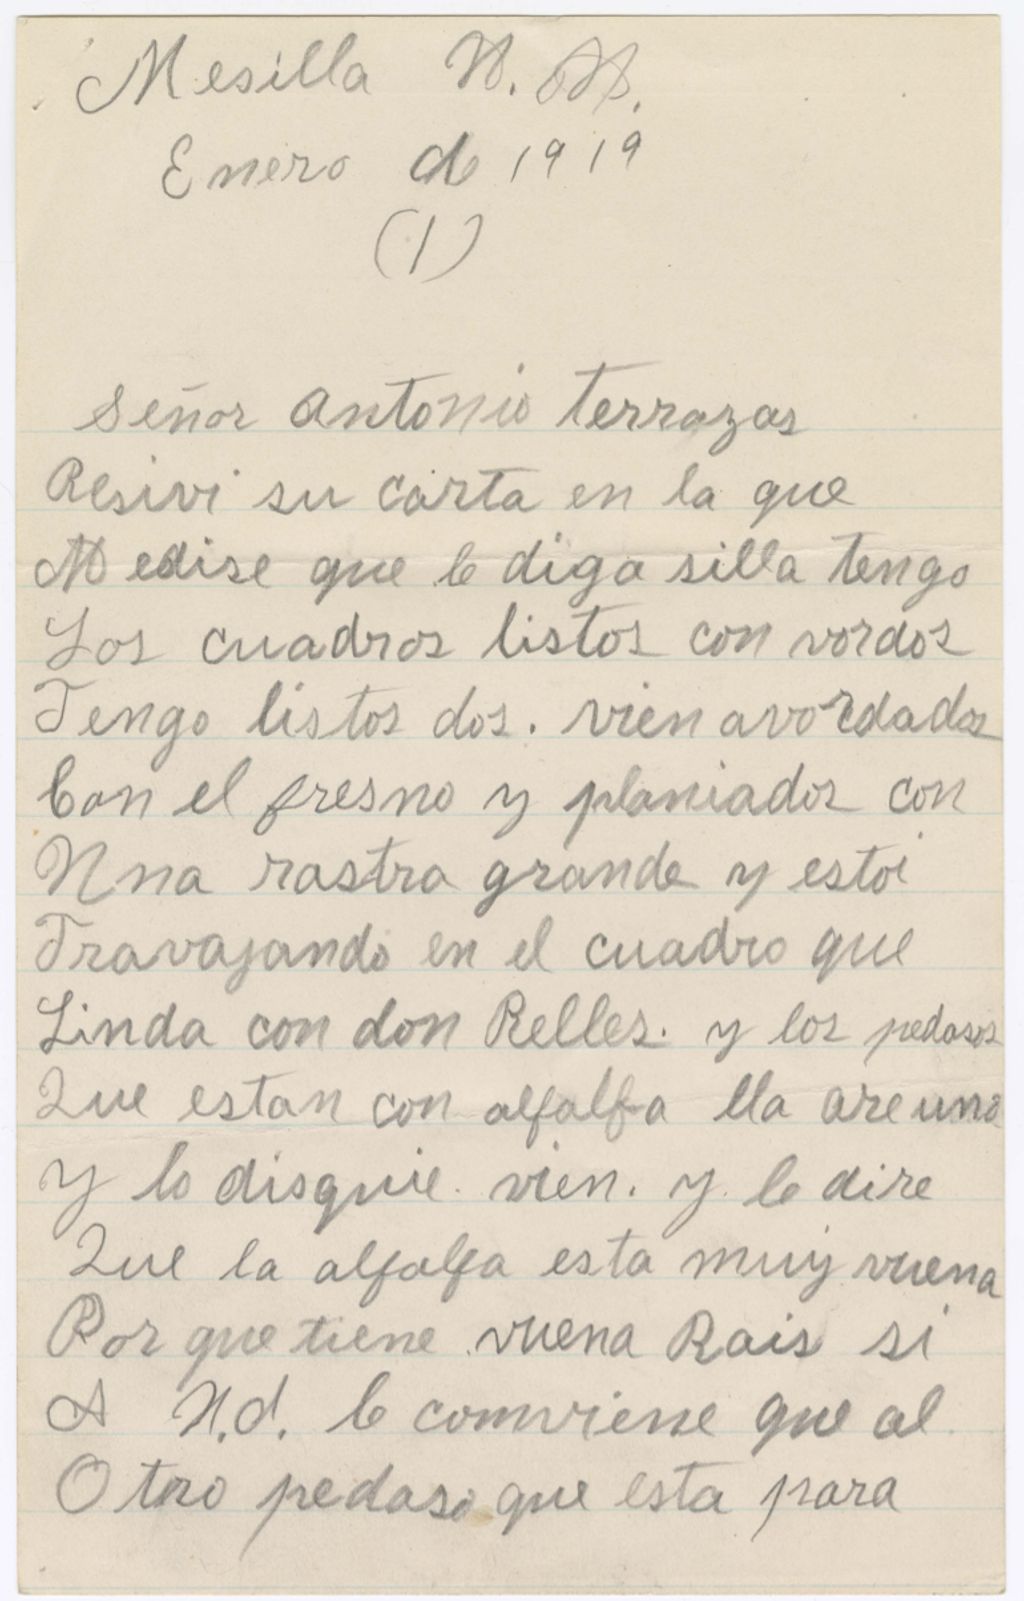 Mesilla N. M.
Enero de 1919
(1)
Señor Antonio Terrazas
Resivi su carta en la que
Me dise que le diga silla tengo
Los cuadros listos con vordos
Tengo listos dos. vien avordados
Con el fresno y planiados con
Una rastra grande y estoi
Travajando en el cuadro que
Linda con don Relles. y los pedasos
Que estan con alfalfa lla are uno
Y lo disquie. vien. y le dire
Que la alfalfa esta muy vuena
Por que tiene vuena Rais si
A U.d. le comviene que al
Otro pedaso que esta para